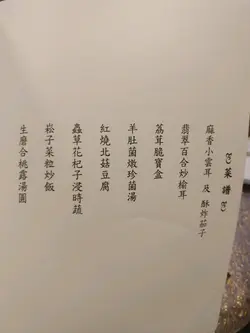 菜譜
麻香小雲耳 及 酥炸茄子
翡翠百合炒榆耳
荔茸脆寶盒
羊肚菌燉珍菌湯
紅燒北菇豆腐
蟲草花杞子浸時蔬
崧子菜粒炒飯
生磨合桃露湯圓